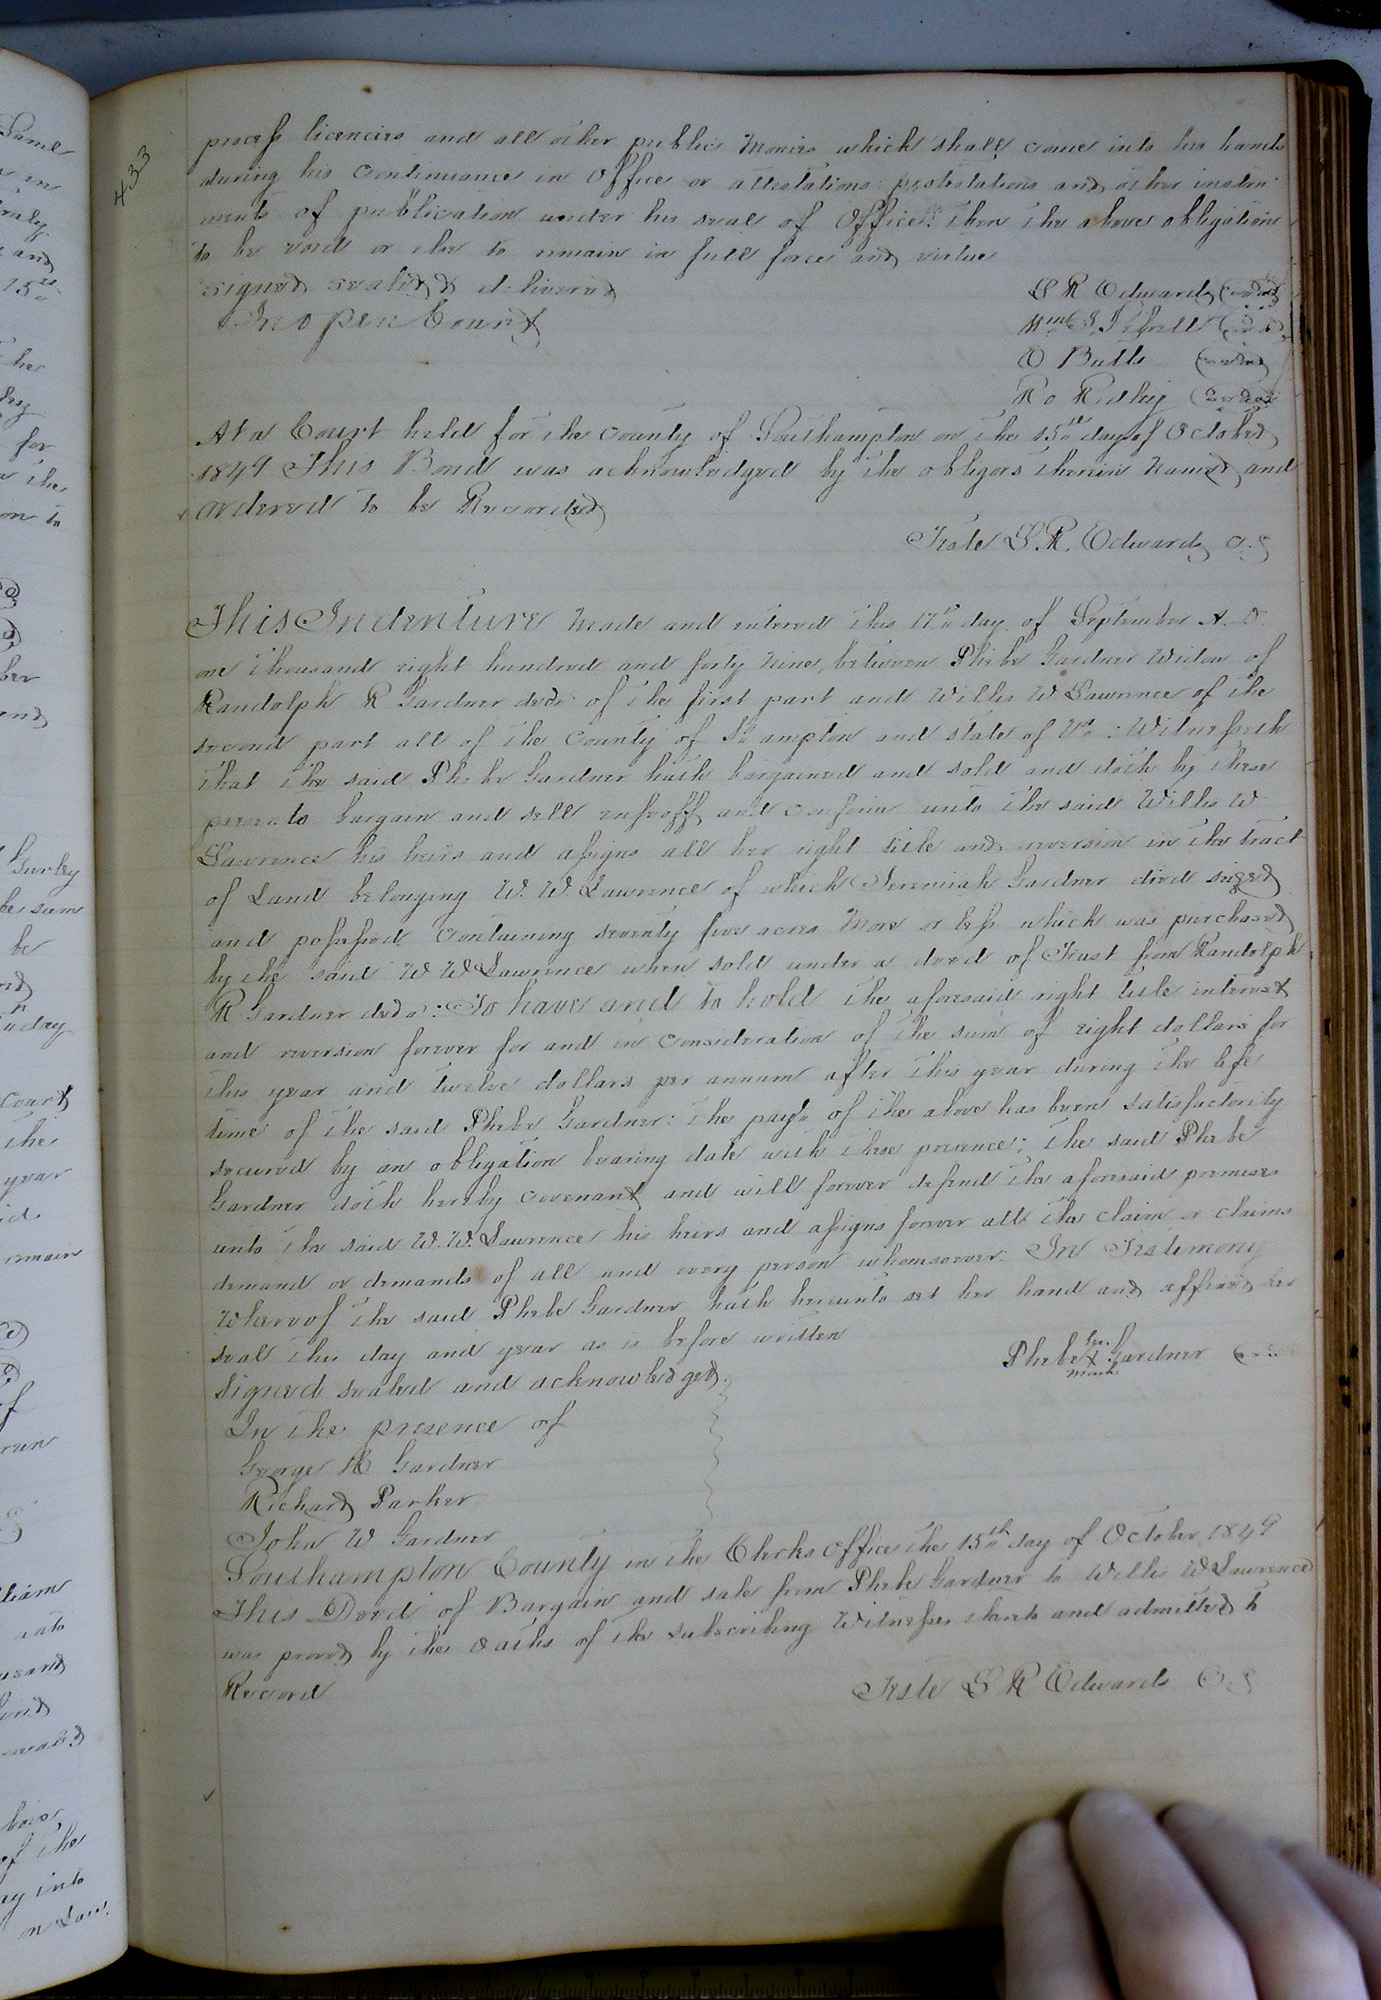 433
process licencies and all other public Monies which shall come into his hands
during his continuance in Office or attestations protestations and other instru
ments of publication under his seal of Office: then the above obligation
to be void or else to remain in full force and virtue
signed sealed & delivered
In open Court
L R Edwards (seal)
Wm
O Butts (seal)
Ro Ridley (seal)
At a Court held for the County of Southampton on the 15th day of October
1849 This Bond was acknowledged by the obligors therein Named and
ordered to be Recorded
Teste L. R. Edwards C.S
This Indenture Made and entered this 17th day of September A. D.
one thousand eight hundred and forty Nine, between Phebe Gardner Widow of
Randolph R Gardner decd. of the first part and Willis W Lawrence of the
second part all of the County of So ampton and state of Va : Witnesseth
that the said Phebe Gardner hath bargained and sold and doth by these
presents bargain and sell enfeoff and confirm unto the said Willis W
Lawrence his heirs and assigns all her right title and reversion in the tract
of Land belonging W. W. Lawrence of which Jeremiah Gardner died siezed
and possessed Containing seventy five acres More or less which was purchased
by the said W W Lawrence when sold under a deed of Trust from Randolph
R Gardner decd. : To have and to hold the aforesaid right title interest
and reversion forever for and in consideration of the sum of eight dollars for
this year and twelve dollars per annum after this year during the life
time of the said Phebe Gardner: the payt. of the above has been satisfactorily
secured by an obligation bearing date with these presence; the said Phebe
Gardner doth hereby covenant and will forever defend the aforesaid premises
unto the said W. W. Lawrence his heirs and assigns forever all the claim or claims
demand or demands of all and every person whomsoever. In Testimony
Whereof the said Phebe Gardner hath hereunto set her hand and affixed her
seal this day and year as is before written
Phebe her X mark Gardner (seal)
signed sealed and acknowledged
In the presence of
George R Gardner
Richard Parker
John W Gardner
Southampton County in the Clerks Office the 15th day of October 1849
This Deed of Bargain and sale from Phebe Gardner to Willis W Lawrence
was proved by the oaths of the subscribing Witnesses thereto and admitted to
Record
Teste L R Edwards C S